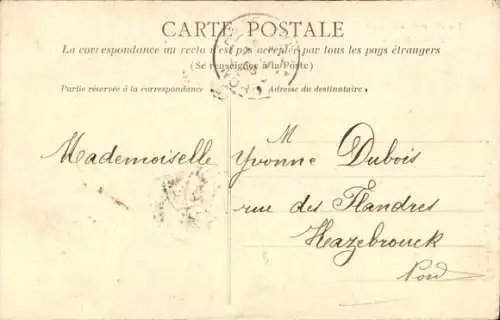 CARTE POSTALE
La correspondance au recto n'est pas acceptée par tous les pays étrangers
(Se renseigner à la Poste)
Partie réservée à la correspondance
Adresse du destinataire
M
Mademoiselle Yvonne Dubois
rue des Flandres
Hazebrouck
Nord